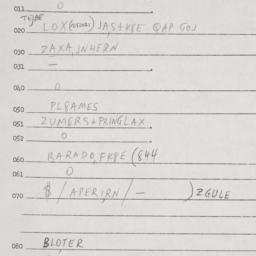 011 0
020 LOX JAS+KBE QAP GOJ
030 ZAXA, JNHERN
031 —
040 0
050 PLGAMES
051 ZUMERS+PRINGLAX
052 0
060 BARADO, FKPE (844
061 0
070 $ / APERIRN / — ) ZGULE
080 BLOTER